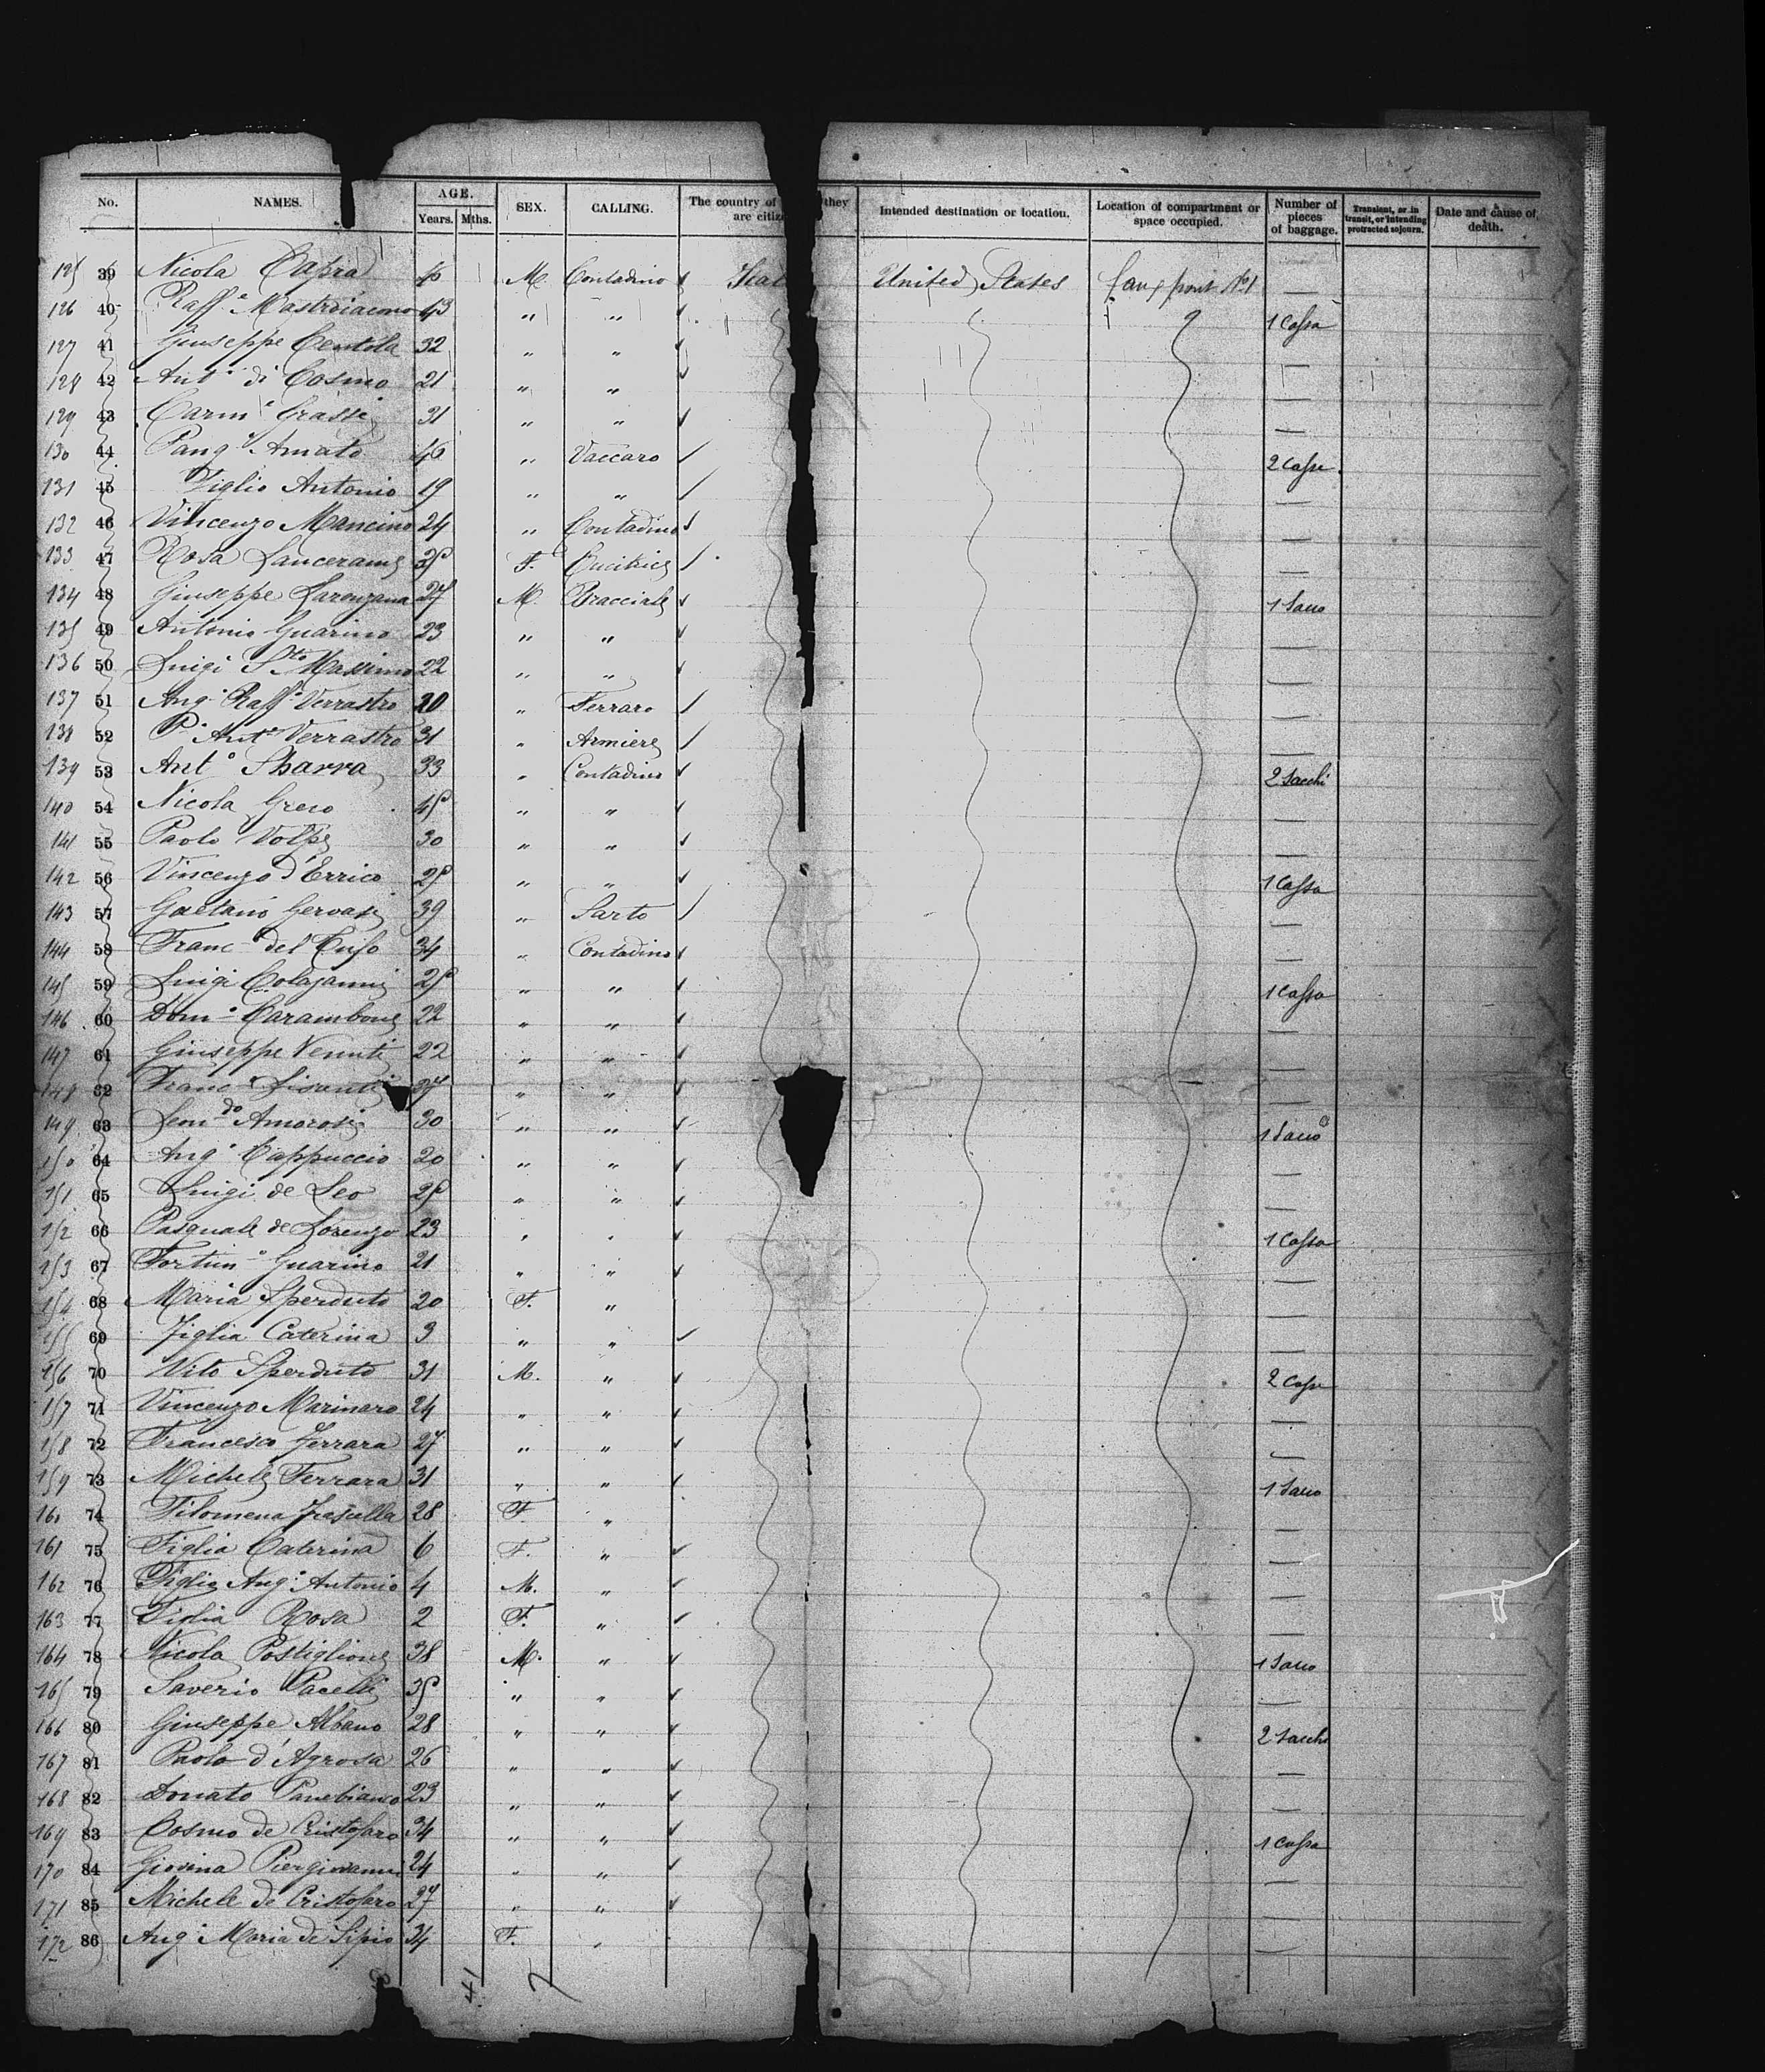 No. NAMES. AGE. Years. Mths. SEX. CALLING. The country of they are Intended destination or location. Location of compartment or space occupied. Number of pieces of baggage. Transient, or in transit, or intending protracted sojourn. Date and cause of death.
125 39 Nicola Capra M. Contadino United States
126 40 Raff.e Mastroiacomo 43 " " 1 Cassa
127 41 Giuseppe Centola 32 " " —
128 42 Ant.o di Cosmo 21 " " —
129 43 Carm.e Grassi 31 " " —
130 44 Amato 46 " Vaccaro 2 Casse
131 45 Figlio Antonio 19 " " —
132 46 Vincenzo Mancino 24 " Contadino —
133 47 Rosa F. —
134 48 Giuseppe 27 M. Bracciale 1 Sacco
135 49 Antonio Guarino 23 " " —
136 50 Luigi S.to Massimo 22 " " —
137 51 Ang.o Raff.e Verrastro 20 " Ferraro —
138 52 P. Ant.o Verrastro 31 " Armiere —
139 53 Ant.o Sbarra 33 " Contadino 2 Sacchi
140 54 Nicola Greco 45 " " —
141 55 Paolo Volpe 30 " " —
142 56 Vincenzo d'Errico 25 " " 1 Cassa
143 57 Gaetano Gervasi 39 " Sarto —
144 58 Franc.o del 34 " Contadino —
145 59 Luigi Colajanni 25 " " 1 Cassa
146 60 Dom.o Carambone 22 " " —
147 61 Giuseppe Venuti 22 " " —
148 62 Franc.o Lisanti " " —
149 63 Leon.do Amorosi 30 " " 1 Sacco
150 64 Ang.o Cappuccio 20 " " —
151 65 Luigi de Leo 25 " " —
152 66 Pasquale de Lorenzo 23 " " 1 Cassa
153 67 Fortun.o Guarino 21 " " —
154 68 Maria Sperduto 20 F. " —
155 69 Figlia Caterina 3 " " —
156 70 Vito Sperduto 31 M. " 2 Casse
157 71 Vincenzo Marinaro 24 " " —
158 72 Francesco Ferrara 27 " " —
159 73 Michele Ferrara 31 " " 1 Sacco
160 74 Filomena 28 F. " —
161 75 Figlia Caterina 6 F. " —
162 76 Figlio Ang.o Antonio 4 M. " —
163 77 Figlia Rosa 2 F. " —
164 78 Nicola Postiglione 38 M. " 1 Sacco
165 79 Saverio Pacelli 35 " " —
166 80 Giuseppe Albano 28 " " 2 Sacchi
167 81 Paolo d'Agrosa 26 " " —
168 82 Donato Panebianco 23 " " —
169 83 Cosmo de Cristofaro 34 " " 1 Cassa
170 84 Giovina Piergiovanni 24 " " —
171 85 Michele de Cristofaro 27 " " —
172 86 Ang.a Maria di Sipio 34 F. " —
41 7